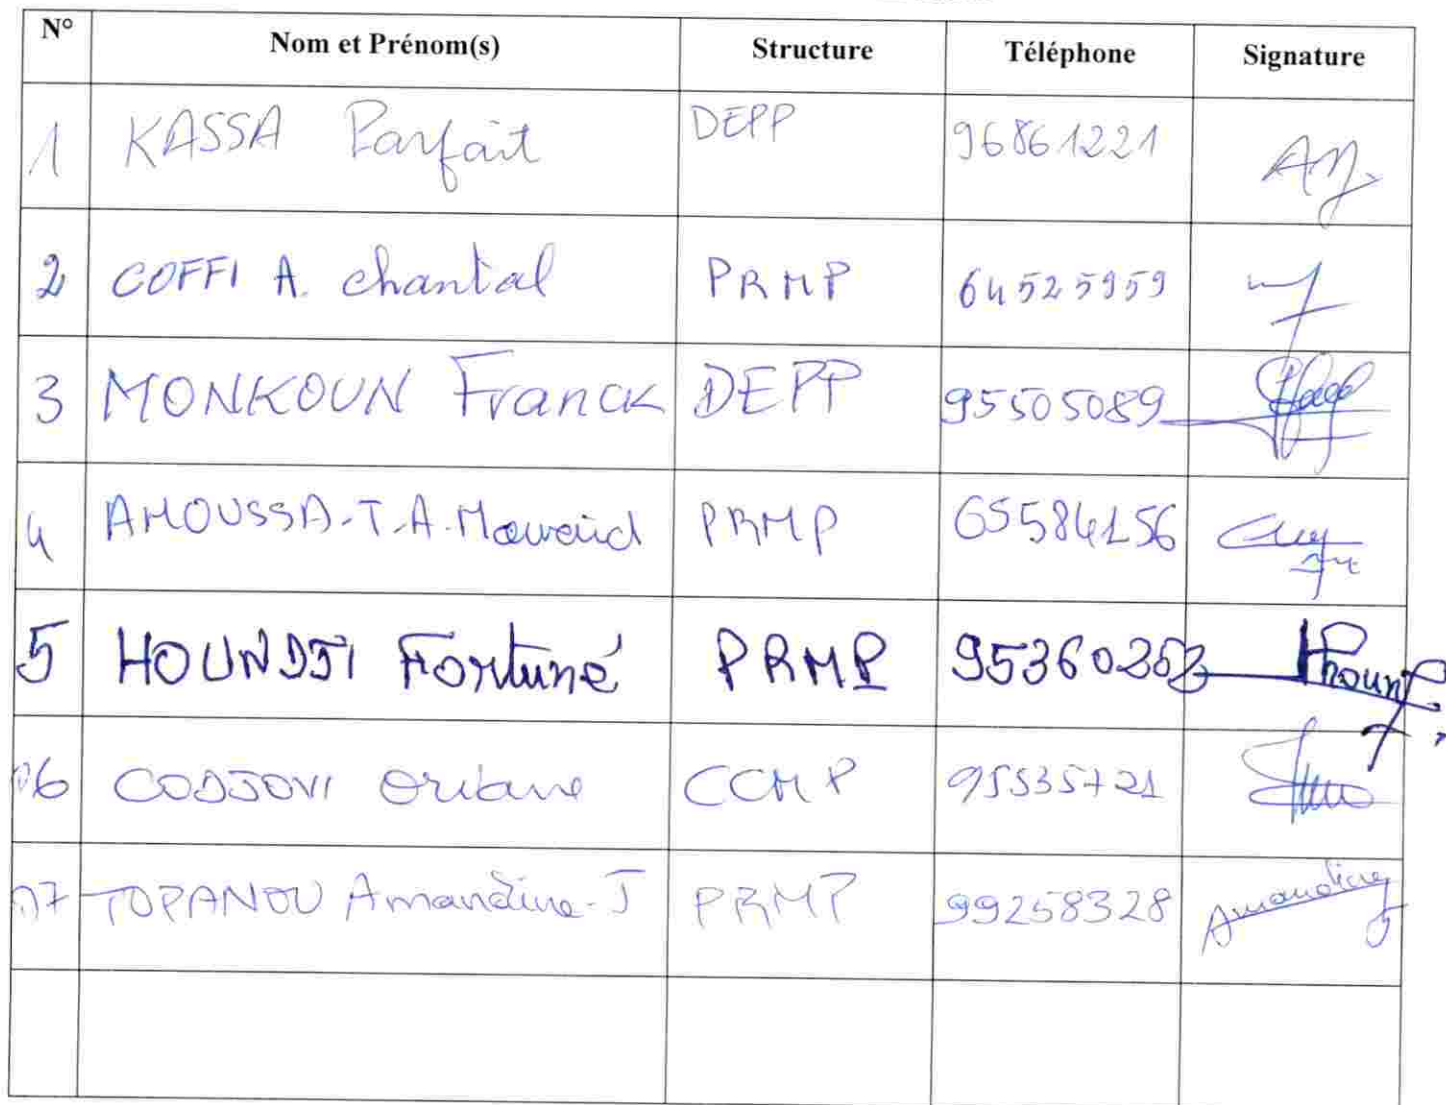 N° Nom et Prénom(s) Structure Téléphone Signature
1 KASSA Parfait DEPP 96861221
2 COFFI A. chantal PRMP 64525959
3 MONKOUN Franck DEPP 95505089
4 AMOUSSA-T.A. PRMP 65584156
5 HOUNDJI Fortuné PRMP
06 CODJOVI Oriane CCMP 95535721
07 TOPANOU Amandine-J PRMP 99258328 Amandine